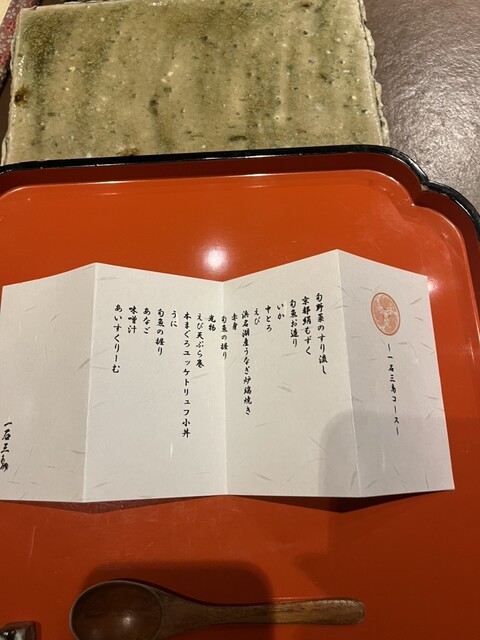 〜一石三鳥コース〜
旬野菜のすり流し
京都絹もずく
旬魚お造り
いか
中とろ
えび
浜名湖産うなぎ炉端焼き
赤身
旬魚の握り
光物
えび天ぷら巻
本まぐろユッケトリュフ小丼
うに
旬魚の握り
あなご
味噌汁
あいすくりーむ
一石三鳥